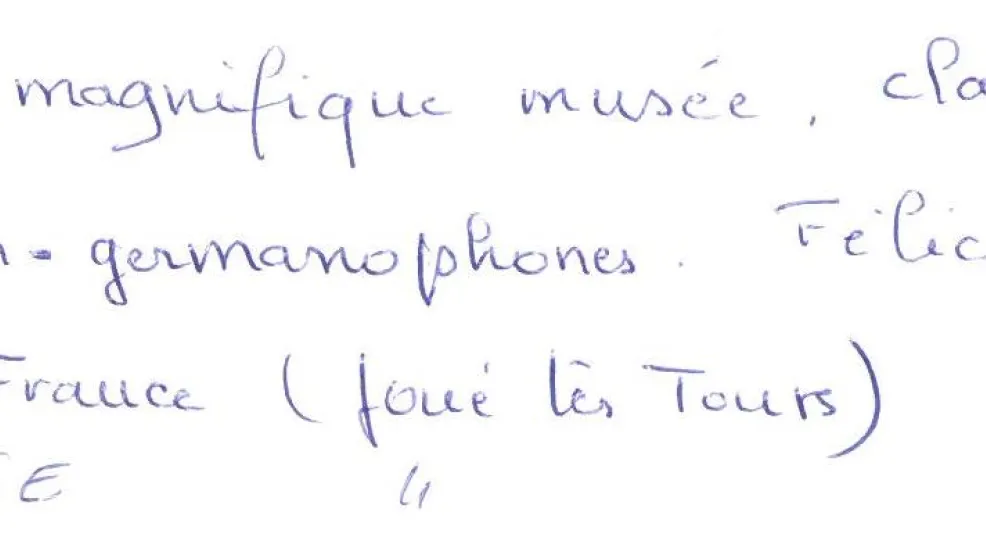 magnifique musée, cla
n-germanophones. Félic
France (Joué lès Tours)
E "